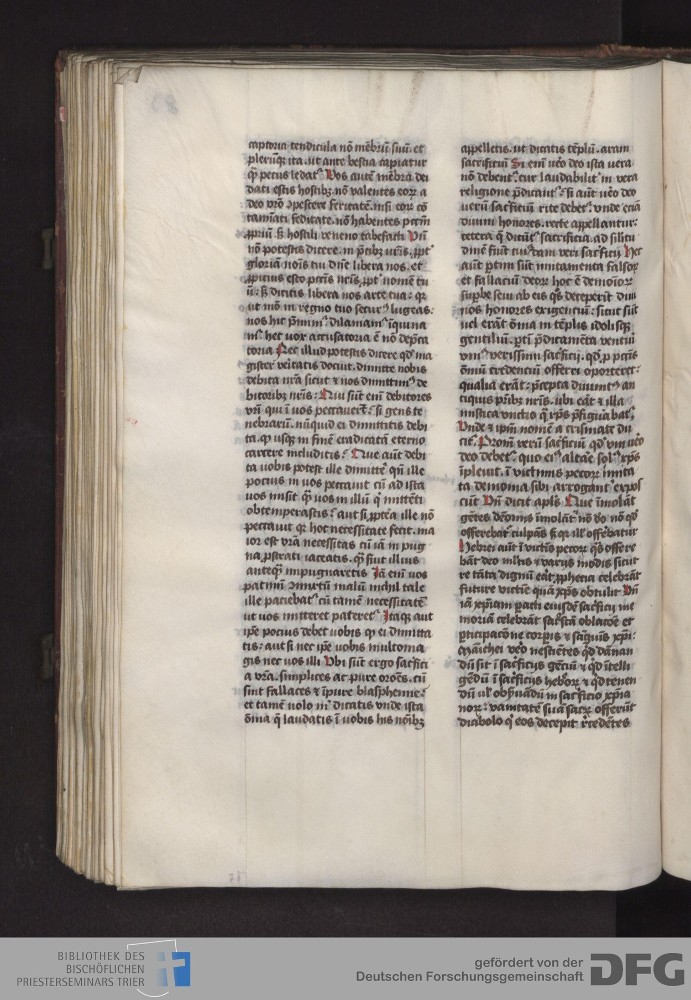 captoria tendicula nō mēbrū suū. et
plerūq; ita. ut ante bestia capiatur
q̄ pecus ledat᷒ Vos autē mēbra dei
dati estis hostib; nō valentes eorꝝ a
deo vr̄o ꝯpescere feritatē. nisi eorꝝ cō
tamīati feditate. nō habentes pctm̄
ꝓpriū. s; hostili veneno tabefacti. Vn̄
nō potestis dicere. in pctīs vr̄is, ꝓpt̄
gloriam nōis tui dn̄e libera nos. et
ꝓpicius esto pctīs nr̄is, ꝓpt̄ nomē tu
ū: s; dicitis libera nos arte tua: qꝛ
ut mō in regno tuo securꝰ lugeas:
nos hic
hec uox accusatoria ē nō depca
toria. Nec illud potestis dicere qd̄ ma
gister veritatis docuit. dimitte nobis
debita nr̄a sicut & nos dimittimꝰ de
bitorib; nr̄is: Qui sūt eni debitores
vr̄i qui ī uos peccauerūt: si gens te
nebrarū. nūquid ei dimittitis debi
ta. qꝫ usq; in finē eradicatā eterno
carcere includitis: Que aūt debi
ta uobis potest ille dimittē qn̄ ille
pocius in uos peccauit cū ad ista
uos misit q̄ uos in illū q̄ mittēti
obtemperastis: aut si ꝓpterea ille nō
peccauit qꝛ hoc necessitate fecit. ma
ior est vr̄a necessitas cū iā in pug
na ꝓstrati iaceatis. q̄ fuit illius
anteq̄ inpugnaretis. Iā eni uos
patimī ꝯmixtū malū. nichil tale
ille paciebat᷒ cū tamē necessitatē
ut uos mitteret pateret᷒ Itaq; aut
ip̄e pocius debet uobis qꝫ ei dimitta
tis: aut si nec ip̄e uobis multoma
gis nec uos illi. Vbi sūt ergo sacrifici
a vr̄a. simplices ac pure orōes. cū
sint fallaces & īpure blasphemie:
et tamē uolo m̄ dicatis unde ista
ōmia q̄ laudatis ī uobis hiis noīb;
appelletis. ut dicatis tēplū. aram
sacrificiū Si eni uēo deo ista uera
nō debent᷒. cur laudabilit᷒ in vera
religione p̄dicant᷒: si aūt uēo deo
uerū sac̄ficiū rite debet᷒. unde eciā
diuini honores. recte appellantur:
cetera q̄ dicūt᷒ sacrificia. ad silitu
dinē fiūt cuiꝰdam veri sac̄ficij. Hec
aūt ptim sūt imitamenta falsoꝝ
et fallaciū deoꝝ hoc ē demonioꝝ
supbe seu ab eis q̄s deceperūt diui
nos honores exigenciū: sicut sūt
uel erāt ōmia in tēplis idolisq;
gentiliū. ptī p̄dicamēta venturi
vniꝰ verissimi sac̄ficij. qd̄, p pctīs
ōmiū credenciū offerri oporteret:
qualia erāt: p̄cepta diuinitꝰ an
tiquis prib; nr̄is. ubi erāt & illa
mistica unctio q̄ xp̄s p̄figurabat᷒
Vnde & ip̄m nomē a crismate du
cit. Proin verū sac̄ficiū qd̄ uni uēo
deo debet᷒. quo eiꝰ altare solꝰ xp̄s
īpleuit. ī victimis pecoꝝ imita
ta demonia sibi arrogant᷒ expos
cūt. Vn̄ dicit apl̄s. Que īmolāt
gētes dēoniis īmolāt. nō do nō qd̄
offerebat᷒ culpās s; qꝛ ill᷒ offerebatur
Hebrei aūt ī victīs pecoꝝ q̄s offere
bāt deo ml̄tis & variis modis sicut
re tāta dignū erat. ꝓphetiā celebrāt
future victie quā xp̄s obtulit. Vn̄
iā xp̄iani pacti eiusdē sac̄ficii me
moriā celebrāt sacrs̄cā oblacōe et
pticipacōne corpis & sāguis xp̄i:
Manichei vēo nesciētes qd̄ dānan
dū sit ī sac̄ficiis gēciū & qd̄ ītelli
gēdū ī sac̄ficiis hebrorꝝ & qd̄ tenen
dū ul̄ obs̄uādū in sac̄ficio xp̄ia
noꝝ: vanitatē suā sacrꝝ offerūt
diabolo q̄ eos decepit recedētes
BIBLIOTHEK DES
BISCHÖFLICHEN
PRIESTERSEMINARS TRIER
gefördert von der
Deutschen Forschungsgemeinschaft
DFG